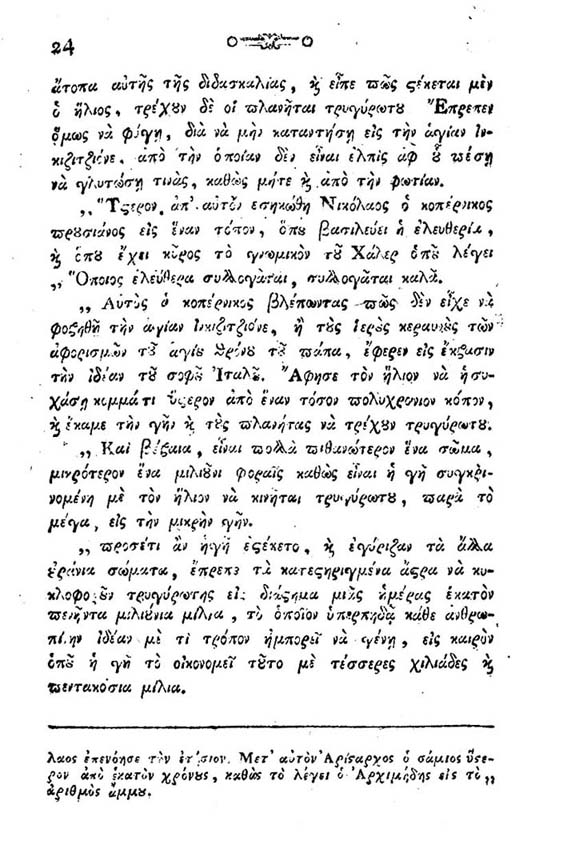 24
ἄτοπα αὐτῆς τῆς διδασκαλίας, ϗ εἶπε πῶς ϛέκεται μὲν
ὁ ἥλιος, τρέχȣν δὲ οἱ πλανῆται τρυγύρωτȣ Ἔπρεπεν
ὅμως νὰ φύγῃ, διὰ νὰ μὴν καταντήσῃ εἰς τὴν ἁγίαν Ἰν-
κιζιτζιόνε. ἀπὸ τὴν ὁποίαν δὲν εἶναι ἐλπὶς ἀφ ȣ̔͂ πέσῃ
νὰ γλυτώσῃ τινὰς, καθὼς μήτε ϗ ἀπὸ τὴν φωτίαν.
„ Ὕϛερον ἀπ' αὐτὸν ἐσηκώθη Νικόλαος ὁ κοπέρνικος
πρȣσιάνος εἰς ἕναν τόπον, ὅπȣ βασιλεύει ἡ ἐλευθερία,
ϗ ὁπȣ ἔχει κῦρος τὸ γνωμικὸν τȣ͂ Χάλερ ὁπȣ̀ λέγει
„ Ὅποιος ἐλεύθερα συλλογᾶται, συλλογᾶται καλά.
„ Αὐτὸς ὁ κοπέρνικος βλέπωντας πῶς δὲν εἶχε νὰ
φοβηθῇ τὴν ἁγίαν Ἰνκιζιτζιόνε, ἢ τȣ̀ς ἱερȣ̀ς κεραυνȣ̀ς τῶν
ἀφορισμῶν τȣ͂ ἁγίȣ Θρόνȣ τȣ͂ πάπα, ἔφερεν εἰς ἔκβασιν
τὴν ἰδέαν τȣ͂ σοφȣ͂ Ἰταλȣ͂. Ἄφησε τὸν ἥλιον νὰ ἡσυ-
χάσῃ κομμάτι ὕϛερον ἀπὸ ἕναν τόσον πολυχρόνιον κόπον,
ϗ ἔκαμε τὴν γῆν ϗ τȣ̀ς πλανήτας νὰ τρέχȣν τρυγύρωτȣ.
„ Καὶ βέβαια, εἶναι πολλὰ πιθανώτερον ἕνα σῶμα,
μικρότερον ἕνα μιλιȣ́νι φοραῖς καθὼς εἶναι ἡ γῆ συγκρι-
νομένη μὲ τὸν ἥλιον νὰ κινῆται τρυγύρωτȣ, παρὰ τὸ
μέγα, εἰς τὴν μικρὴν γῆν.
„ προσέτι ἂν ἡ γῆ ἐϛέκετο, ϗ ἐγύριζαν τὰ ἄλλα
ȣ̓ράνια σώματα, ἔπρεπε τὰ κατεϛηριγμένα ἄϛρα νὰ κυ-
κλοφορȣ͂ν τρυγύρωτης εἰς διάϛημα μιᾶς ἡμέρας ἑκατὸν
πενῆντα μιλιȣ́νια μίλια, τὸ ὁποῖον ὑπερπηδᾷ κάθε ἀνθρω-
πίνην ἰδέαν μὲ τί τρόπον ἠμπορεῖ νὰ γένῃ, εἰς καιρὸν
ὁπȣ̀ ἡ γῆ τὸ οἰκονομεῖ τȣ͂το μὲ τέσσερες χιλιάδες ϗ
πεντακόσια μίλια.
λαος ἐπενόησε τὴν ἐτήσιον. Μετ' αὐτὸν Ἀρίϛαρχος ὁ σάμιος ὕϛε-
ρον ἀπὸ ἑκατὸν χρόνȣς, καθὼς τὸ λέγει ὁ Ἀρχιμήδης εἰς τὸ „
ἀριθμὸς ἄμμȣ.